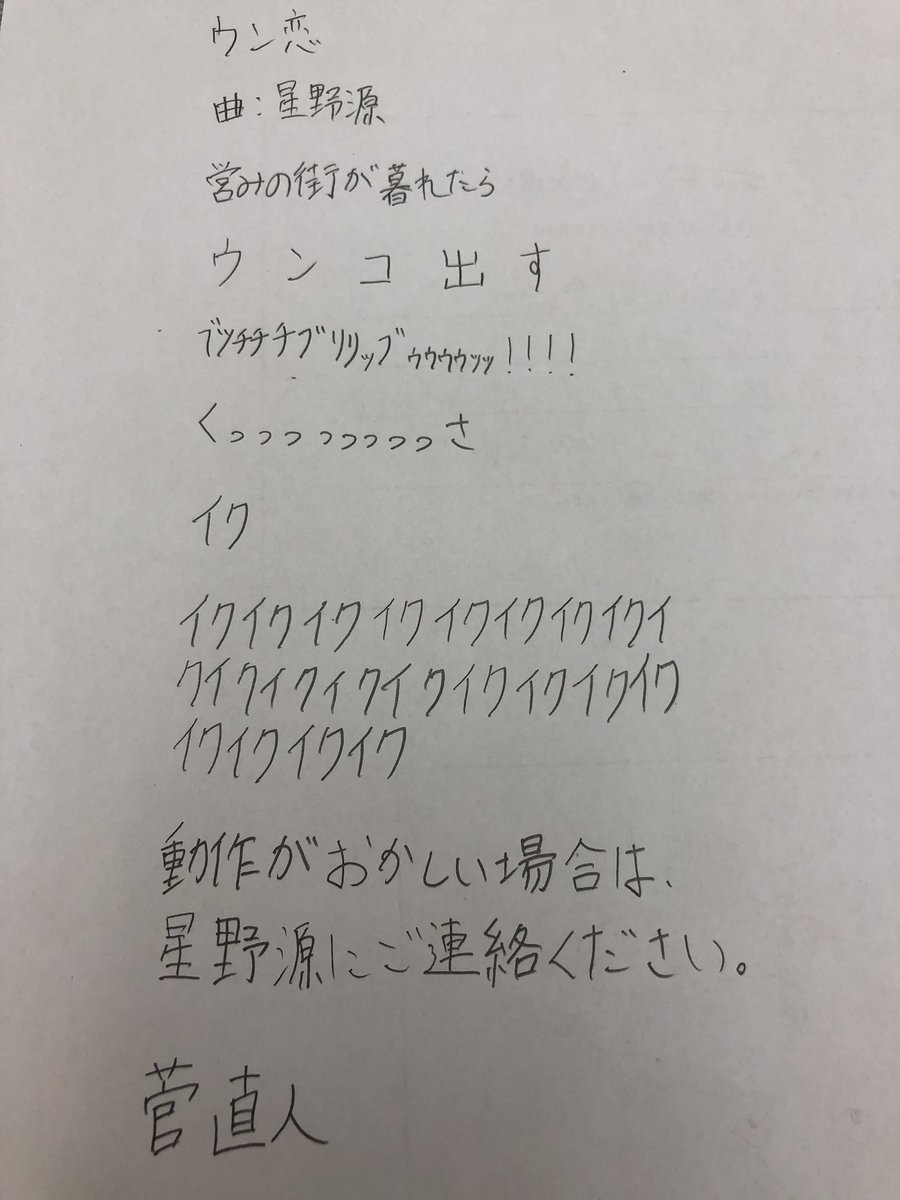 ウン恋
曲:星野源
営みの街が暮れたら
ウンコ出す
ブツチチチブリリッブゥゥゥゥッッ!!!!
くっっっっっっっっさ
イク
イクイクイクイクイクイクイクイクイ
クイクイクイクイクイクイクイクイク
イクイクイクイク
動作がおかしい場合は、
星野源にご連絡ください。
菅直人